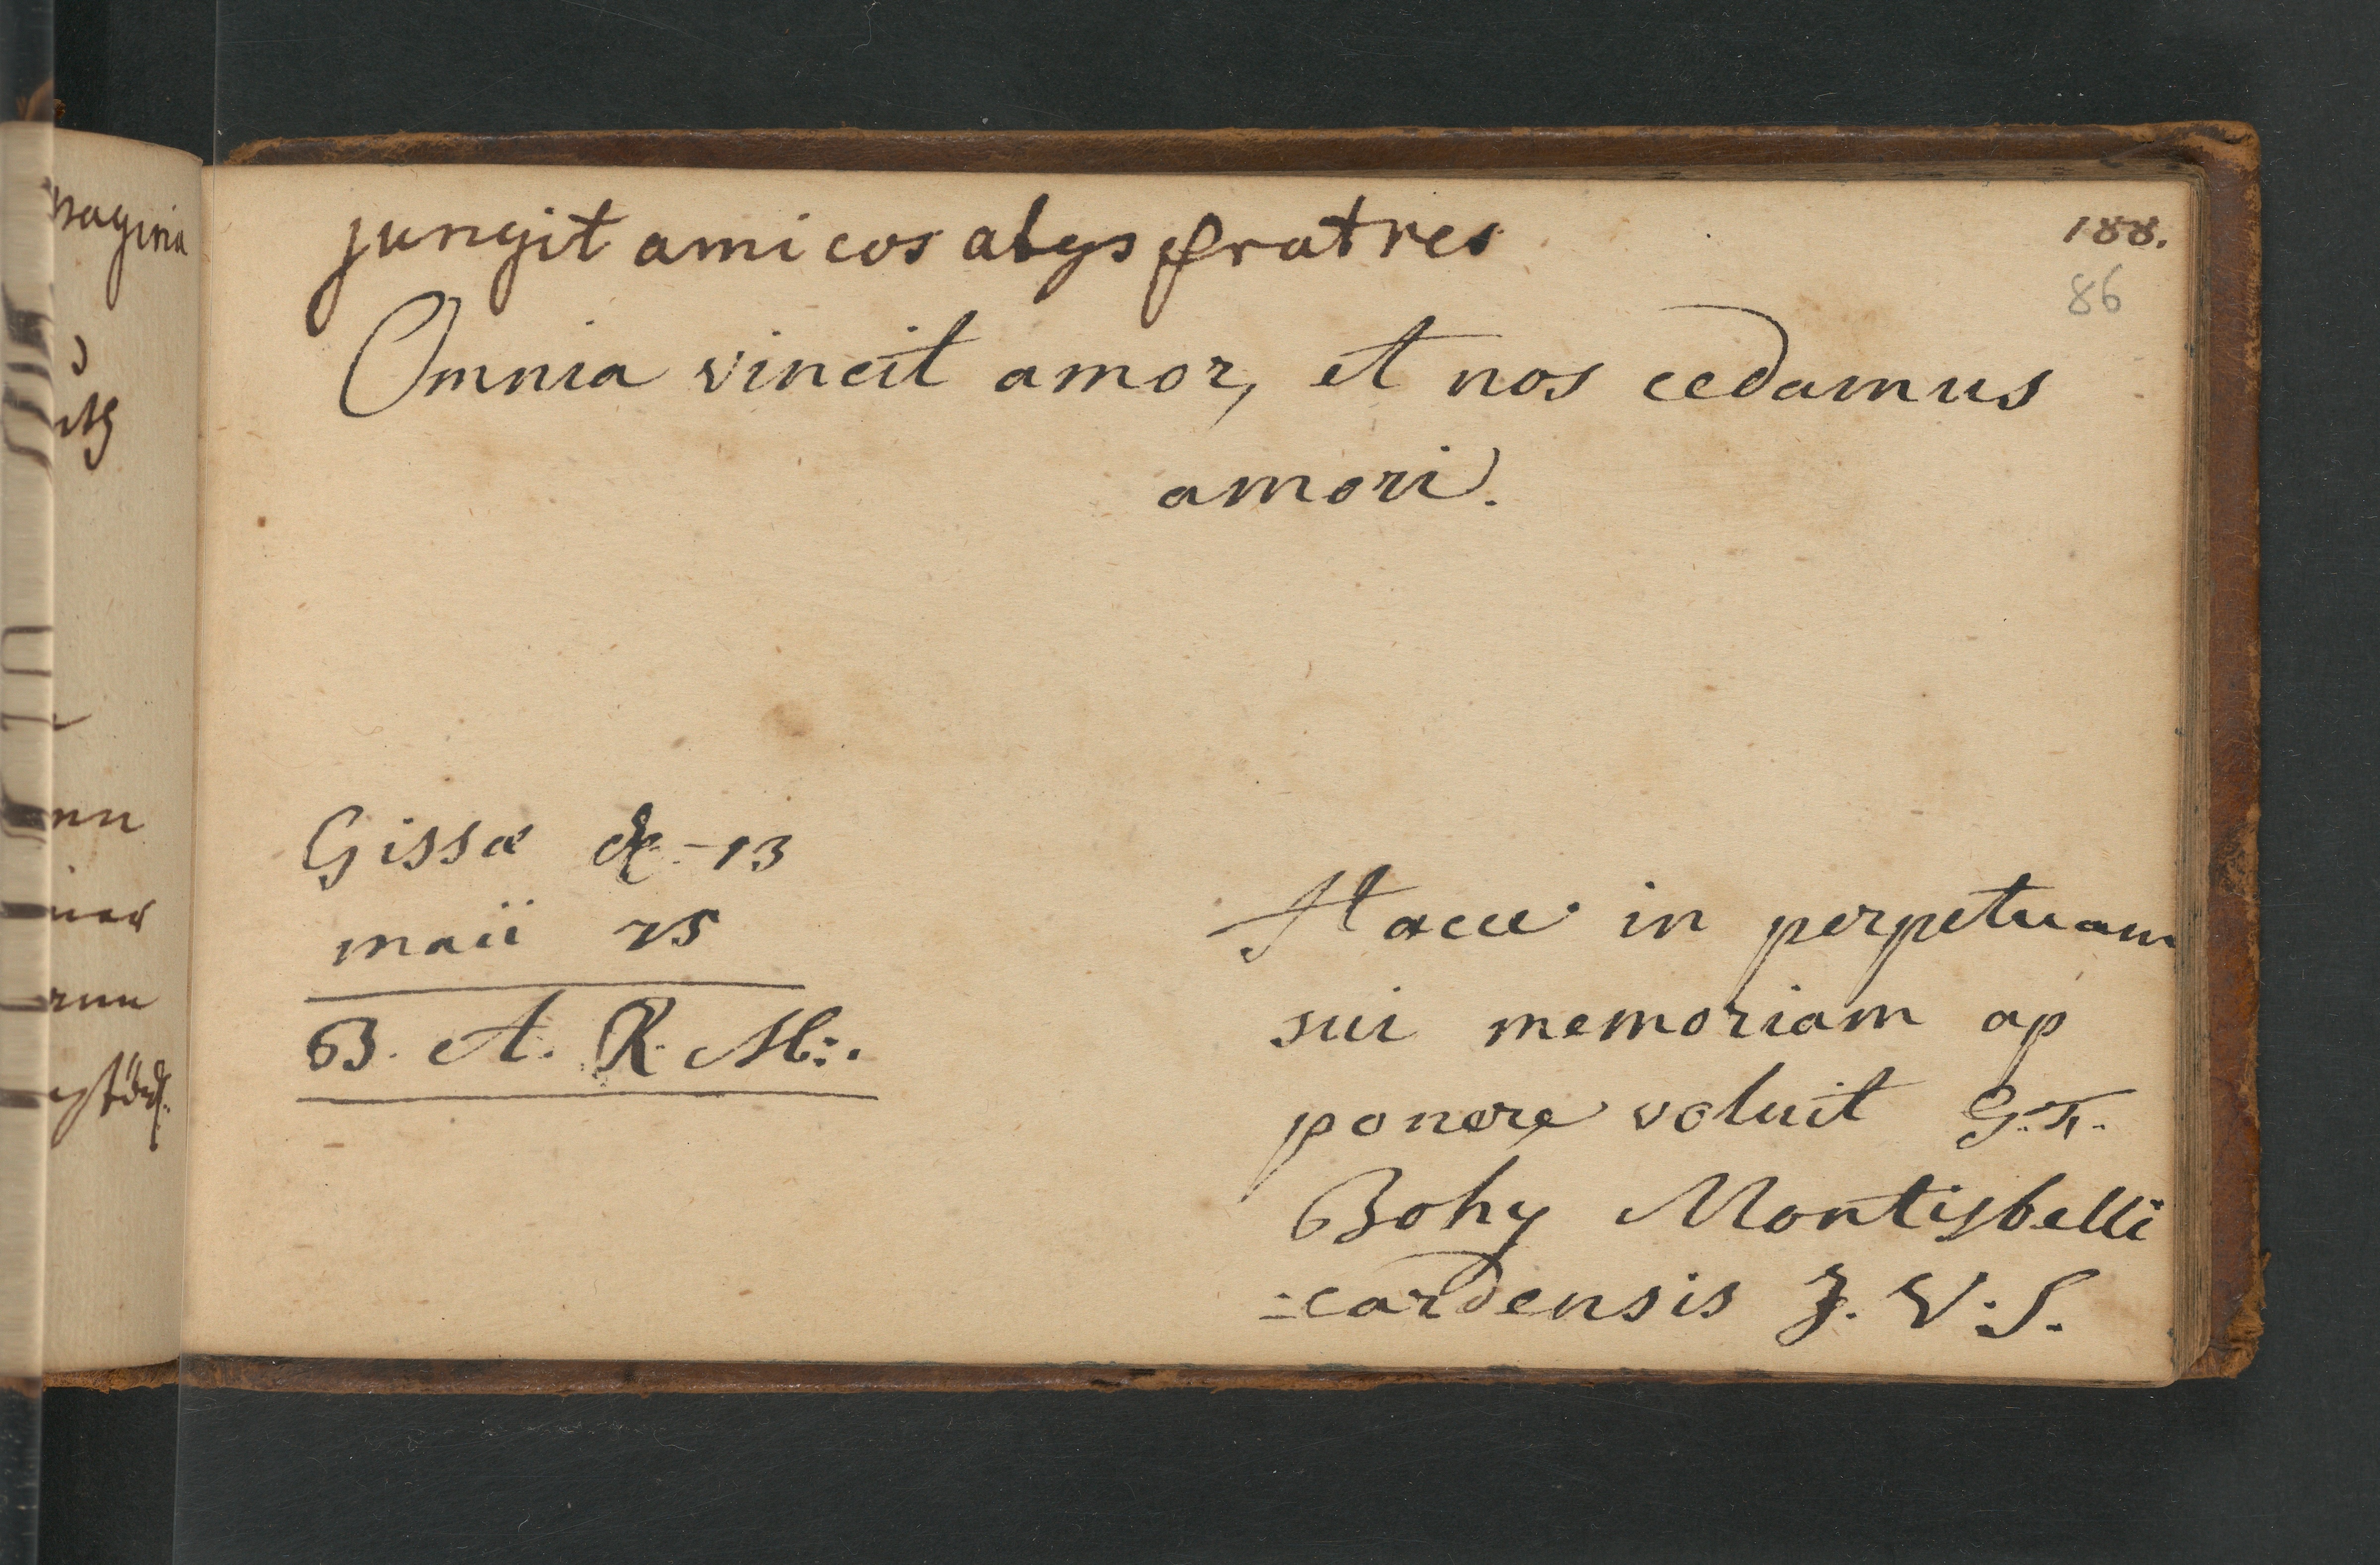 jungit amicos alys fratres
188.
86
Omnia vincit amor, et nos cedamus
amori.
Gissæ d. 13
maii 75
B. A. R. M:.
Haece in perpetuam
sui memoriam ap
ponere voluit G. F.
Bohy Montisbelli
=cardensis J. V. S.